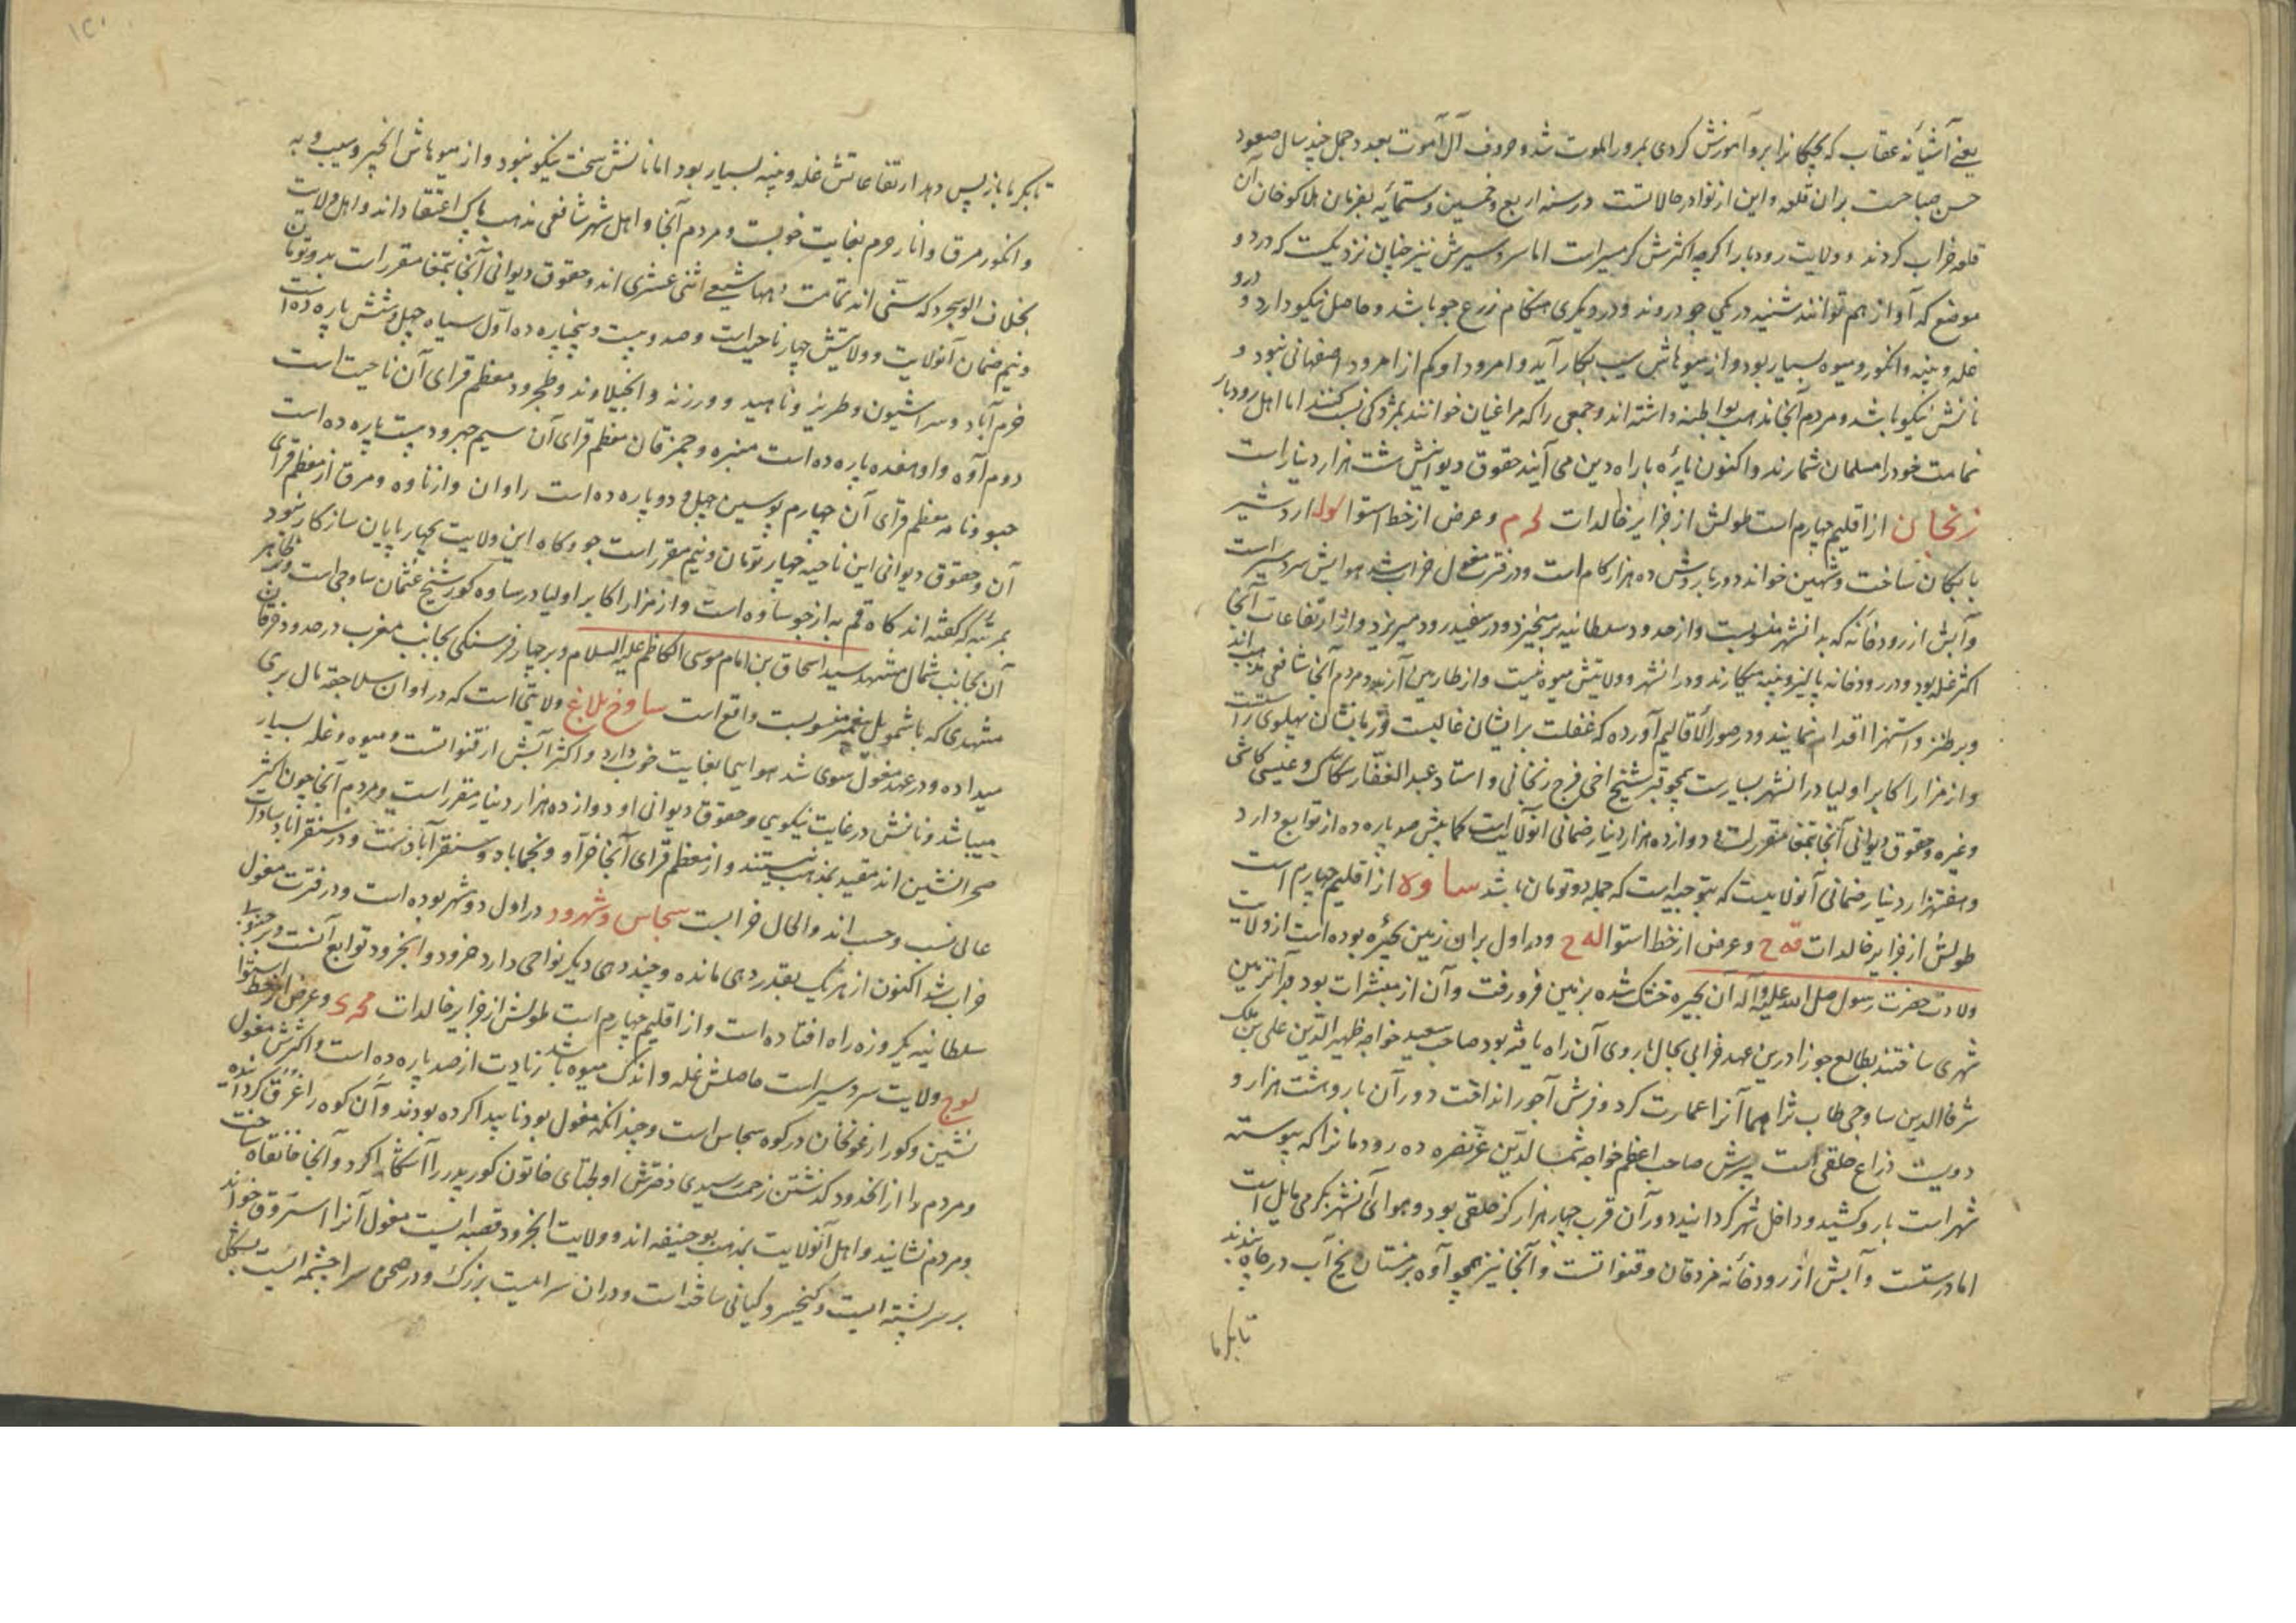 یعنی آشیانه عقاب که بچکانرا برو آموزش کردی بمرور الموت شد و حروف آل آموت بعدد جمل چند سال صعود
حسن صباحست بران قلعه و این از نوادر حالاتست در سنه اربع و خمسین و ستمائیه بفرمان هلاکو خان آن
قلعه خراب کردند و ولایت رودبار اگرچه اکثرش گرمسیر است اما سردسیرش نیز چنان نزدیکست که در دو
موضع که آواز هم توانند شنید در یکی جو دروند و در دیگری هنکام زرع جو باشد و حاصل نیکو دارد و درو
غله و پنبه و انکور و میوه بسیار بود و از میوهاش سیب بکار آید و امرود او کم از امرود اصفهانی نبود و
نانش نیکو باشد و مردم آنجا مذهب بواطنه داشته اند و جمعی را که مراغیان خوانند بمزدکی نسبت کنند اما اهل رودبار
تمامت خود را مسلمان شمارند و اکنون پاره با راه دین می آیند حقوق دیوانیش شت هزار دینار است
زنجان از اقلیم چهارم است طولش از جزایر خالدات لح م و عرض از خط استوا لو له اردشیر
بابکان ساخت و شهین خواند دور باروش ده هزار کام است و در فترت مغول خراب شد هوایش سردسیر است
وآبش از رودخانه که بدانشهر منسوبست و از حدود سلطانیه برمیخیزد و در سفید رود میریزد و از ارتفاعات آنجا
اکثر غله بود و در رودخانه پالیز و پنبه میکارند و در انشهر و ولایتش میوه نیست و از طارمین آرند و مردم آنجا شافعی مذهب اند
و بر طنز و استهزا اقدام نمایند و در صور الاقالیم آورده که غفلت بر ایشان غالبست و زبانشان پهلوی راستست
و از مزار اکابر اولیا در انشهر بسیارست همچو قبر شیخ اخی فرج زنجانی و استاد عبد الغفار سکاک و عیسی کاشی
و غیره و حقوق دیوانی آنجا بتمغا مقرر است و دوازده هزار دینار ضمانی آنولایتست کمابیش صد پاره ده از توابع دارد
و هفتهزار دینار ضمانی آنولایتست که بتوجیه است که جمله دو تومان باشد ساوه از اقلیم چهارم است
طولش از جزایر خالدات فه ح و عرض از خط استوا له ح و در اول بران زمین بحیره بوده است از ولایت
ولادت حضرت رسول صلی الله علیه و آله آن بحیره خشک شده بزمین فرو رفت و آن از مبشرات بود بر آنزمین
شهری ساختند بطالع جوزا درین عهد خرابی بحال باروی آن راه یافته بود صاحب سعید خواجه ظهیر الدین علی بن ملک
شرف الدین ساوجی طاب ثراهما آنرا عمارت کرد و فرش آجر انداخت دور آن بارو هشت هزار و
دویست ذراع خلقی است پسرش صاحب اعظم خواجه شمس الدین عز نصره ده رودمانرا که پیوسته
شهر است بارو کشید و داخل شهر کردانید دور آن قرب چهار هزار کز خلقی بود و هوای آنشهر بکرمی مایل است
اما درستست وآبش از رودخانه مزدقان و قنواتست و آنجا نیز همچو آوه بزمستان یخ آب در چاه بندند
تا بکرما
تا بکرما باز پس دهد ارتفاعاتش غله و پنبه بسیار بود اما نانش سخت نیکو نبود و از میوهاش انجیر و سیب و به
و انکور مرق و انار خرم بغایت خوبست و مردم آنجا و اهل شهر شافعی مذهب پاک اعتقاد اند و اهل ولایت
بخلاف الوسجرد که سنی اند تمامت دهها شیعی اثنی عشری اند و حقوق دیوانی آنجا بتمغا مقرر است بدو تومان
و نیم ضمان آنولایت و ولایتش چهار ناحیتست و صد و بیست و پنج پاره ده اول سیاه چهل و شش پاره ده است
خرم آباد و سراشیون و طریز و ناهید و ورزنه و انجیلاوند و طجرود معظم قرای آن ناحیت است
دوم آوه و او هفده پاره ده است منبره و جمزقان معظم قرای آن سیم جهرود بیست پاره ده است
جبو ونامه معظم قرای آن چهارم بوسین چهل و دو پاره ده است راوان و ازناوه و مرق از معظم قرای
آن و حقوق دیوانی این ناحیه چهار تومان و نیم مقرر است جو و کاه این ولایت بچهار پایان سازکار نبود
بمرتبه که کفته اند کاه قم به از جو ساوه است و از مزار اکابر اولیا در ساوه کور شیخ عثمان ساوجی است و بظاهر
آن بجانب شمال مشهد سید اسحاق بن امام موسی الکاظم علیه السلام و بر چهار فرسنکی بجانب مغرب در حدود خرقان
مشهدی که باشمویل پیغمبر منسوبست واقع است ساوخ بلاغ ولایتی است که در اوان سلاجقه مال بری
میداده و در عهد مغول سوی شد هوایی بغایت خوب دارد و اکثر آبش از قنواتست و میوه و غله بسیار
میباشد و نانش در غایت نیکویی و حقوق دیوانی او دوازده هزار دینار مقرر است و مردم آنجا چون اکثر
صحرانشین اند مقید بمذهب نیستند و از معظم قرای آنجا خرآو و نجماباد و سنقرآباد نست و در سنقراباد سادات
عالی نسب و حسب اند والحال خرابست سجاس و شهرود در اول دو شهر بوده است و در فترت مغول
خراب شد اکنون از هریک بقدر دهی مانده و چند دهی دیکر نواحی دارد خرود و انجرود توابع آنست و بر جنوب
سلطانیه یکروزه راه افتاده است و از اقلیم چهارم است طولش از جزایر خالدات لح ی و عرض از خط استوا
لوح ولایت سردسیر است حاصلش غله و اندک میوه باشد زیادت از صد پاره ده است و اکثرش مغول
نشین و کور ارغونخان در کوه سجاس است و چنانکه مغول بود ناپیدا کرده بودند و آن کوه را غرق کردانیده
و مردم را از انحدود کذشتن زحمت رسیدی دخترش اولجتای خاتون کور پدر را آشکارا کرد و آنجا خانقاه ساخت
و مردم نشانید و اهل آنولایت بمذهب بوحنیفه اند و ولایت انجرود قصبه ایست مغول آنرا استروق خوانند
بر سر پشته ایست و کیخسرو کیانی ساخته است و دران سراییست بزرک و در صحن سرا چشمه ایست بشکل